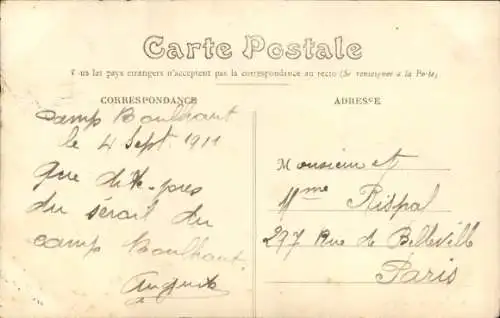 Carte Postale
Tous les pays etrangers n'acceptent pas la correspondance au recto (Se renseigner à la Poste)
CORRESPONDANCE
ADRESSE
Camp Boulhaut
le 4 Sept. 1911
que dite-
du sérail du
camp Boulhaut.
Auguste
Monsieur et
Mme Rispal
277 Rue de Belleville
Paris